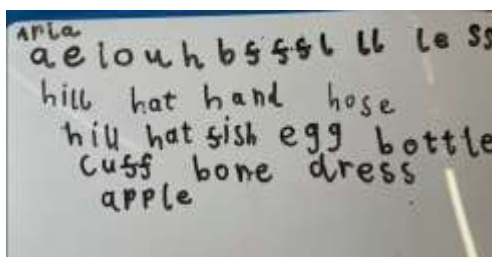 Arla
a e i o u h b f ff l ll le ss
hill hat hand hose
hill hat fish egg bottle
cuff bone dress
apple